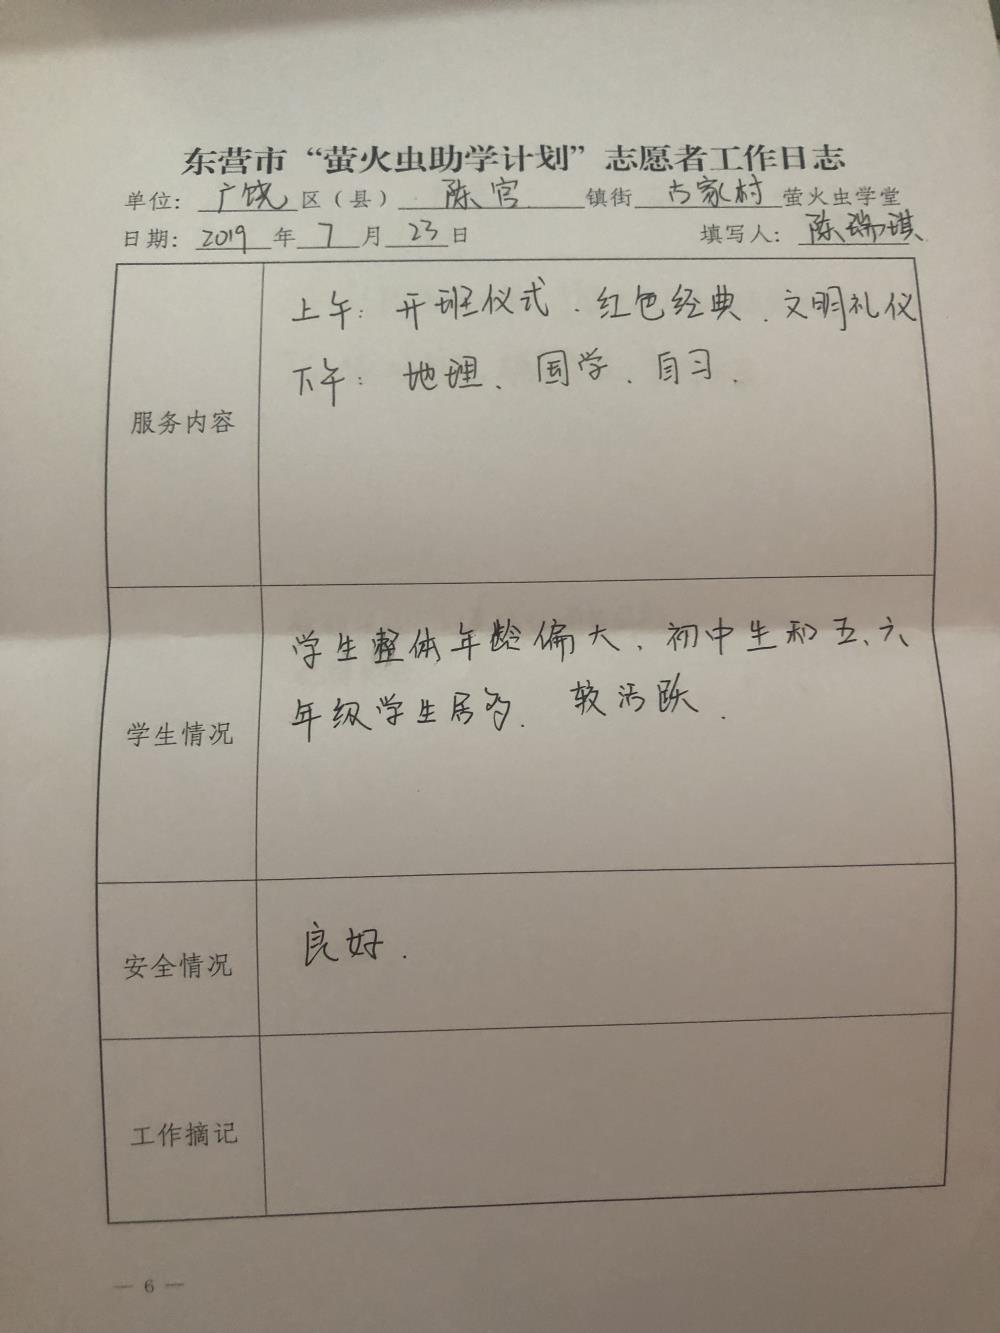 东营市“萤火虫助学计划”志愿者工作日志
单位：广饶区（县）陈官镇街古家村萤火虫学堂
日期：2019年7月23日 填写人：陈瑞琪
服务内容
上午：开班仪式、红色经典、文明礼仪
下午：地理、国学、自习.
学生情况
学生整体年龄偏大、初中生和五、六
年级学生居多. 较活跃.
安全情况
良好.
工作摘记
— 6 —